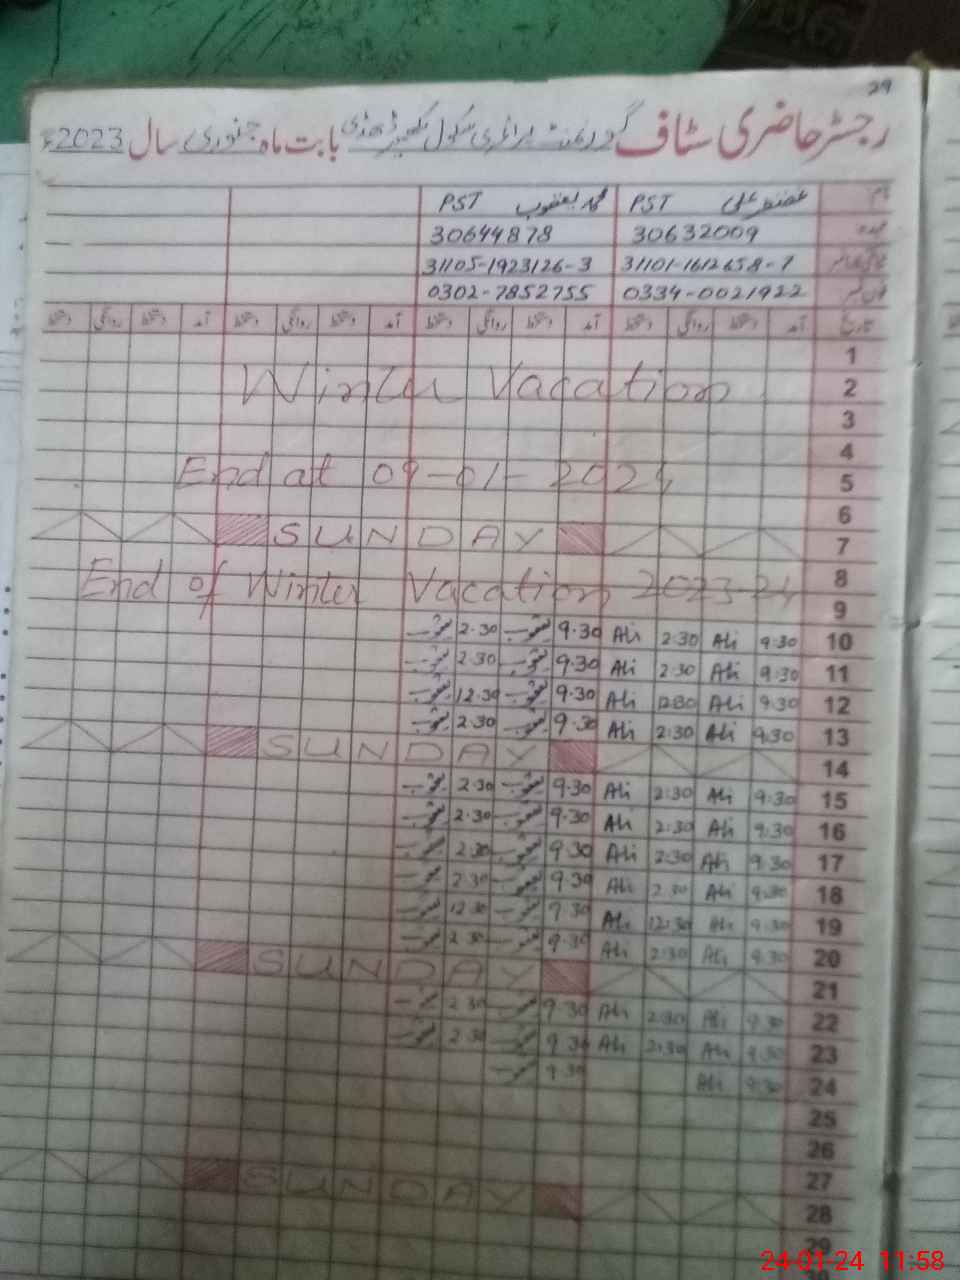 29
رجسٹر حاضری سٹاف گورنمنٹ پرائمری سکول بابت ماہ جنوری سال 2023ء
نام غضنفر علی PST محمد یعقوب PST
عہدہ 30632009 30644878
31101-1612658-7 31105-1923126-3
فون نمبر 0334-0021922 0302-7852755
تاریخ آمد دستخط روانگی دستخط آمد دستخط روانگی دستخط آمد دستخط روانگی دستخط آمد دستخط روانگی دستخط
1
2 Winter Vacation
3
4
5 End at 09-01-2024
6
7 SUNDAY
8 End of Winter Vacation 2023-24
9
10 9.30 Ali 2:30 Ali 9.30 2.30
11 9.30 Ali 2:30 Ali 9.30 2.30
12 9.30 Ali 12:30 Ali 9.30 12.30
13 9.30 Ali 2:30 Ali 9.30 2.30
14 SUNDAY
15 9:30 Ali 2:30 Ali 9.30 2.30
16 9:30 Ali 2:30 Ali 9.30 2.30
17 9:30 Ali 2:30 Ali 9.30 2.30
18 9:30 Ali 2:30 Ali 9.30 2.30
19 9:30 Ali 12:30 Ali 9.30 12.30
20 9:30 Ali 2:30 Ali 9.30 2.30
21 SUNDAY
22 9:30 Ali 2:30 Ali 9.30 2.30
23 9:30 Ali 2:30 Ali 9.30 2.30
24 9:30 Ali 9.30
25
26
27
28 SUNDAY
29
24-01-24 11:58